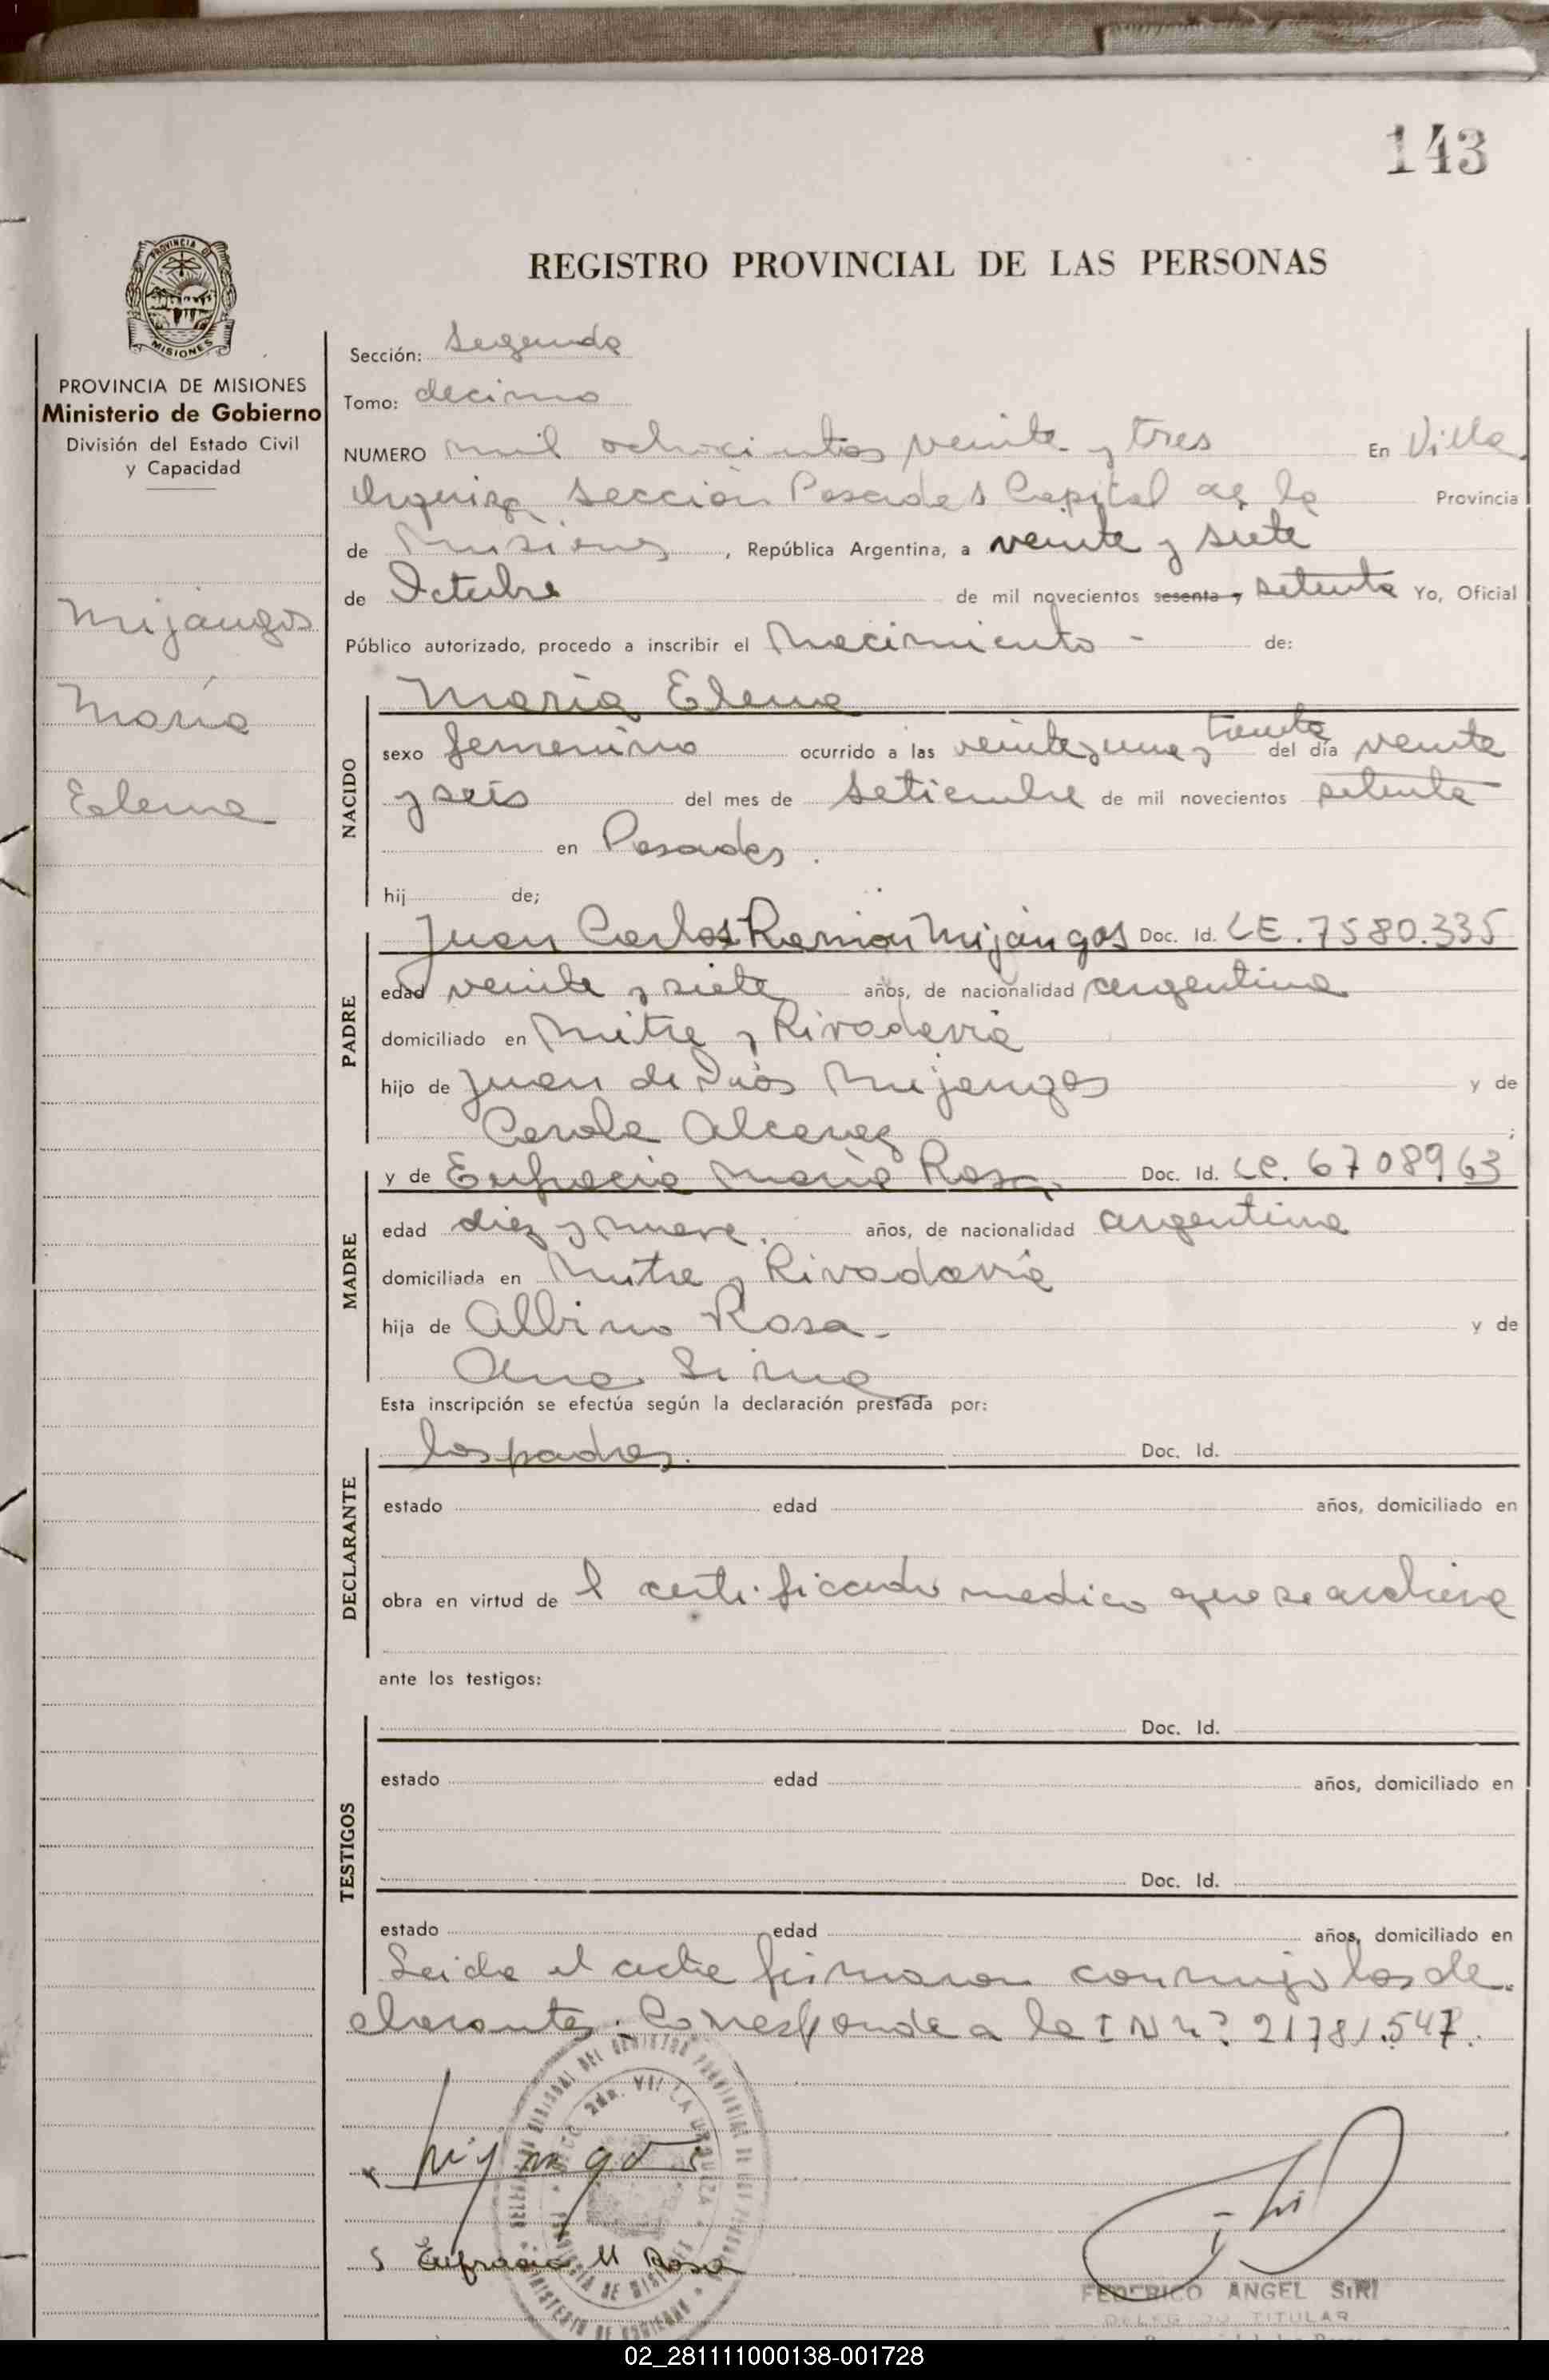 143
PROVINCIA DE
MISIONES
REGISTRO PROVINCIAL DE LAS PERSONAS
PROVINCIA DE MISIONES
Ministerio de Gobierno
División del Estado Civil
y Capacidad
Mijangos
María
Elena
Sección: Segunda
Tomo: decimo
NUMERO mil ochocientos veinte y tres En Villa
Urquiza sección Posadas Capital de la Provincia
de Misiones, República Argentina, a veinte y siete
de Octubre de mil novecientos sesenta y setenta Yo, Oficial
Público autorizado, procedo a inscribir el Nacimiento - de:
NACIDO
María Elena
sexo femenino ocurrido a las veinte y una y treinta del día veinte
y seis del mes de setiembre de mil novecientos setenta
en Posadas.
hij de;
PADRE
Juan Carlos Ramón Mijangos Doc. Id. LE. 7580.335
edad veinte y siete años, de nacionalidad argentina
domiciliado en Mitre y Rivadavia
hijo de Juan de Dios Mijangos y de
Alcaraz
MADRE
y de Eufracia María Rosa. Doc. Id. LC. 6708963
edad diez y nueve. años, de nacionalidad argentina
domiciliada en Mitre y Rivadavia
hija de Albino Rosa- y de
Ana
Esta inscripción se efectúa según la declaración prestada por:
DECLARANTE
los padres. Doc. Id.
estado edad años, domiciliado en
obra en virtud de l certificado medico que se archiva
ante los testigos:
TESTIGOS
Doc. Id.
estado edad años, domiciliado en
Doc. Id.
estado edad años, domiciliado en
Leida el acta firmaron conmigo los de
clarantes. Corresponde a la I N nº 21781.547.
Mijangos
Eufracia M Rosa
FEDERICO ANGEL SIRI
TITULAR
02_281111000138-001728